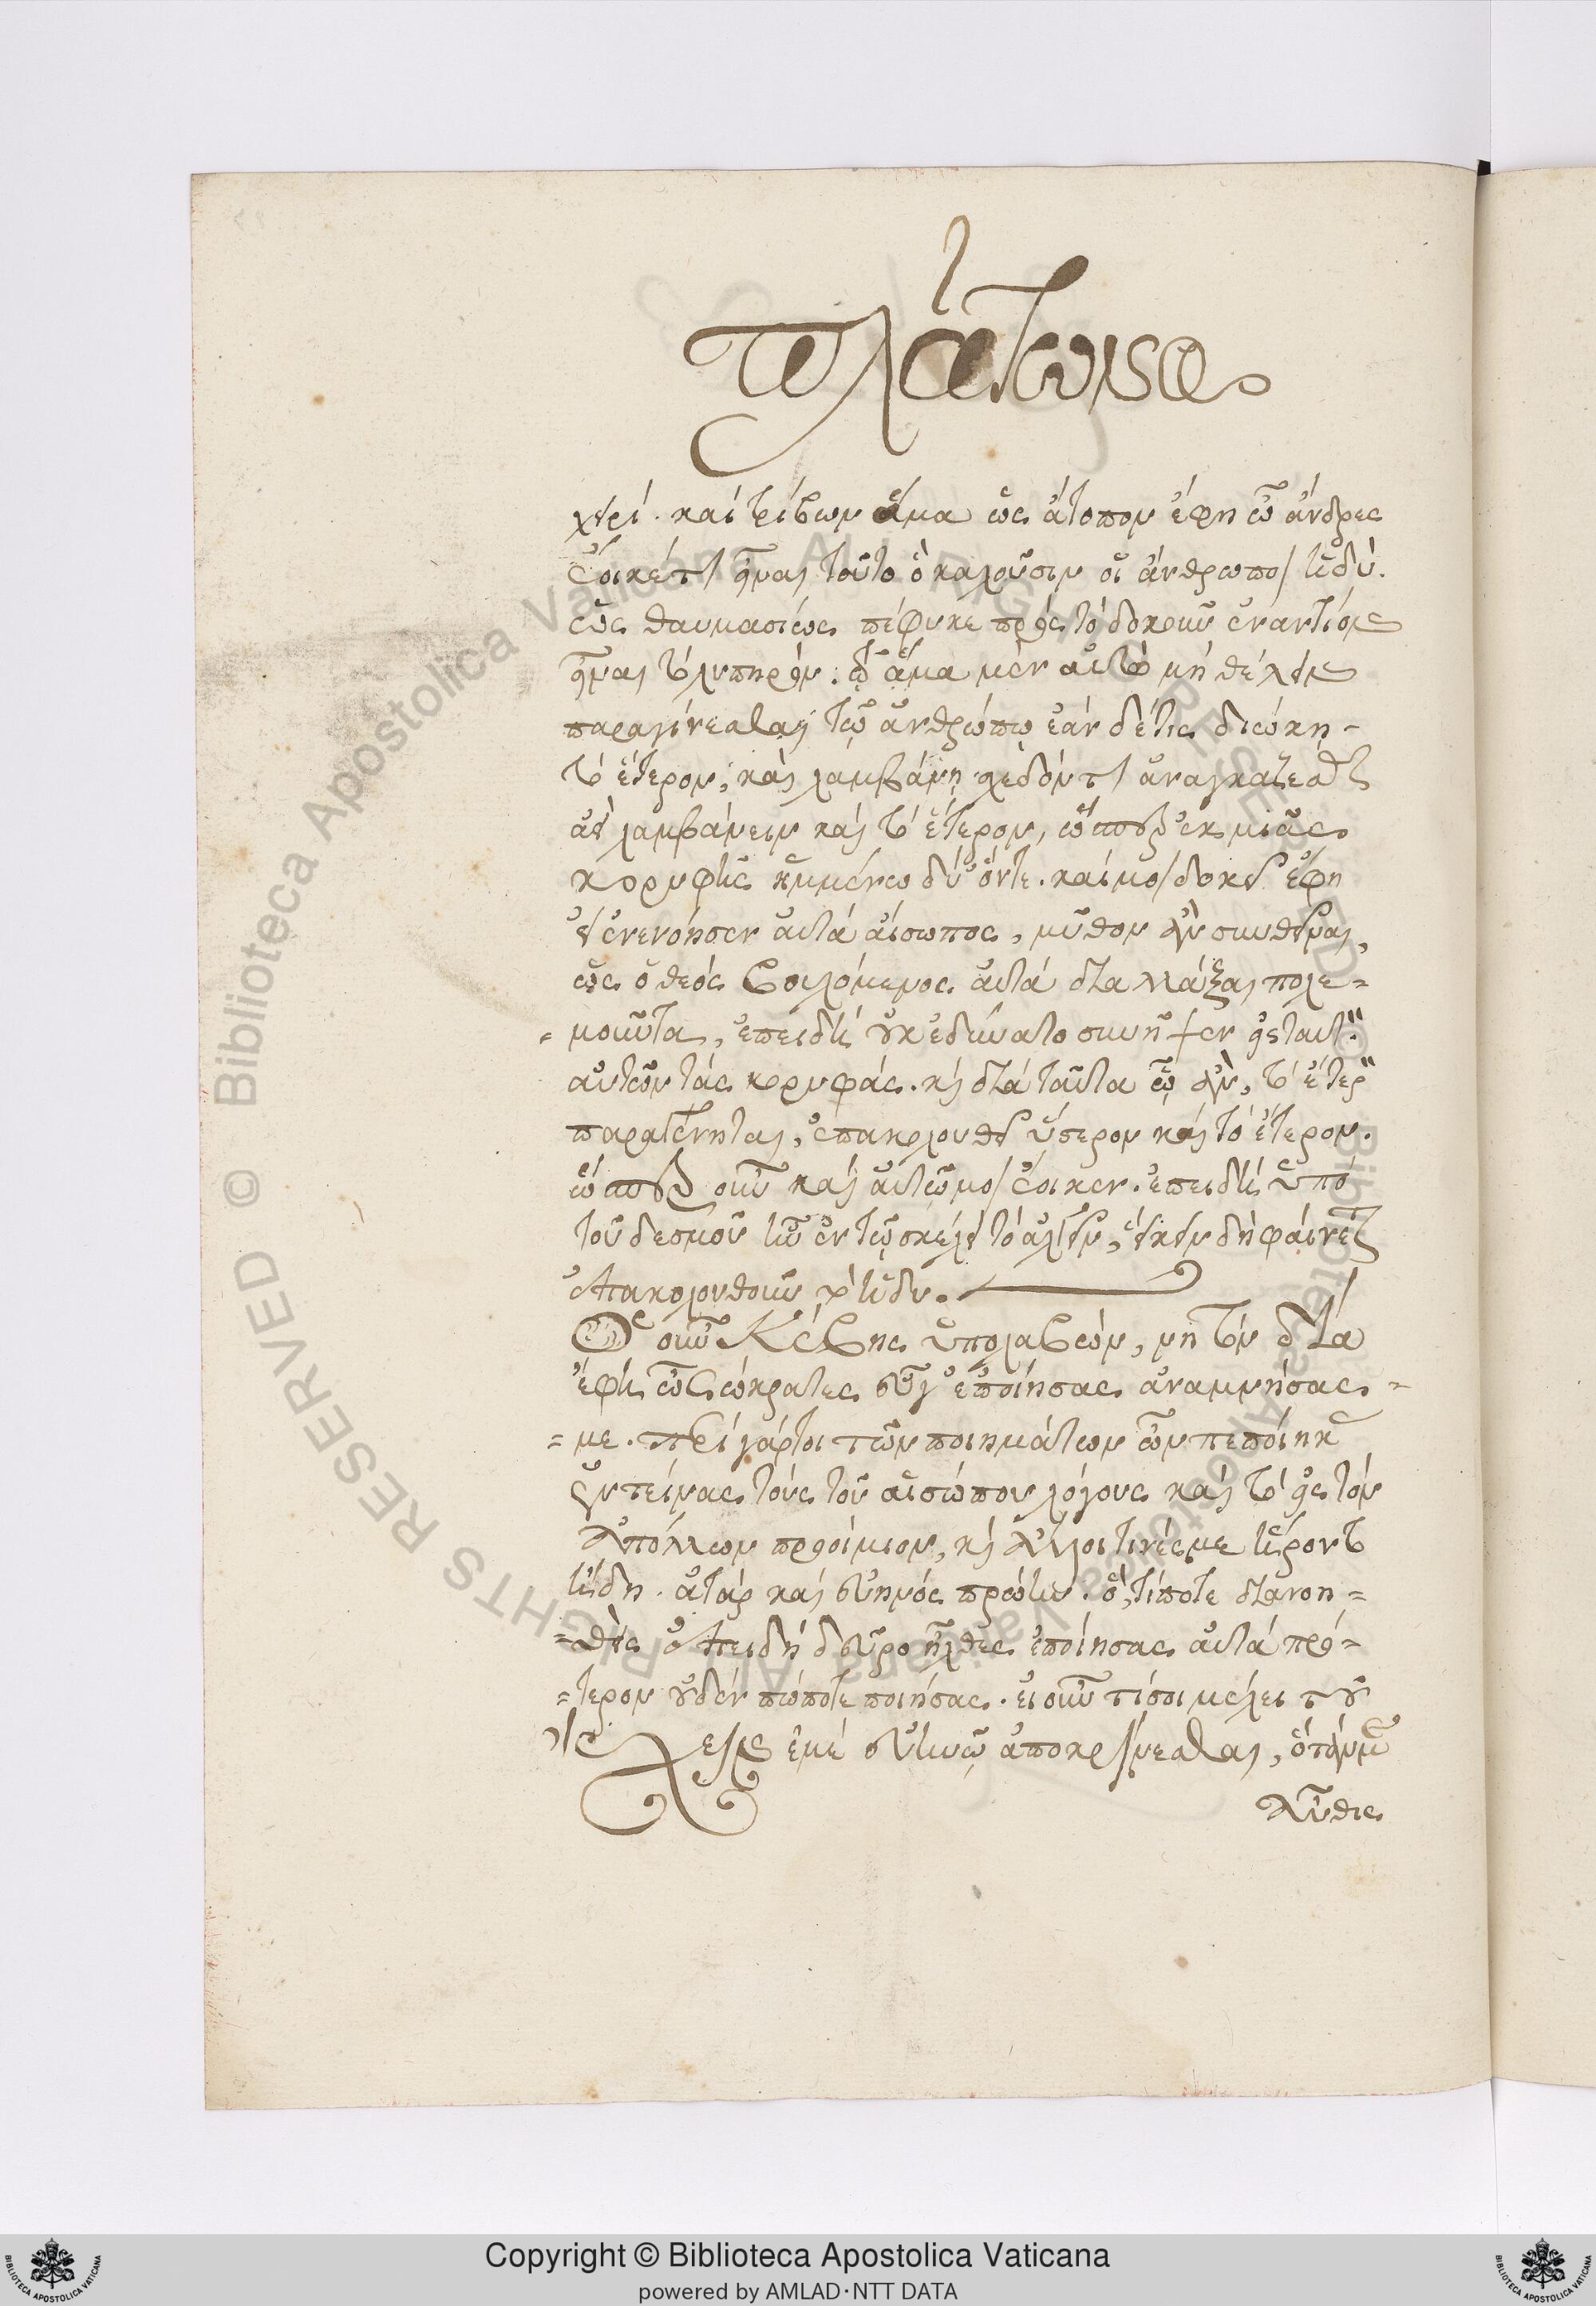 πλάτωνος
χειρί. καὶ τρίβων ἅμα ὡς ἄτοπον ἔφη ὦ ἄνδρες
ἔοικέ τι εἶναι τοῦτο ὃ καλοῦσιν οἱ ἄνθρωποι ἡδύ.
ὡς θαυμασίως πέφυκε πρὸς τὸ δοκοῦν ἐναντίον
εἶναι τὸ λυπηρόν. τῷ ἅμα μὲν αὐτὼ μὴ θέλειν
παραγίνεσθαι τῷ ἀνθρώπῳ ἐὰν δέ τις διώκη
τὸ ἕτερον, καὶ λαμβάνη σχεδόν τι ἀναγκάζεσθαι
ἀεὶ λαμβάνειν καὶ τὸ ἕτερον, ὥσπερ ἐκ μιᾶς
κορυφῆς συνημμένω δύ' ὄντε. καί μοι δοκεῖ ἔφη
εἰ ἐνενόησεν αὐτὰ αἴσωπος, μῦθον ἂν συνθεῖναι,
ὡς ὁ θεὸς βουλόμενος αὐτὰ διαλλάξαι πολε=
= μοῦντα, ἐπειδὴ οὐκ ἐδύνατο συνῆψεν εἰς ταυτὸν
αὐτῶν τὰς κορυφάς. καὶ διὰ ταῦτα ᾧ ἂν, τὸ ἕτερον
παραγένηται, ἐπακολουθεῖ ὕστερον καὶ τὸ ἕτερον.
ὥσπερ οὖν καὶ αὐτῷ μοι ἔοικεν. ἐπειδὴ ὑπὸ
τοῦ δεσμοῦ ἦν ἐν τῷ σκέλει τὸ ἀλγεῖν, ἥκειν δὴ φαίνεται
ἐπακολουθοῦν τὸ ἡδύ.
Ὁ οὖν Κέβης ὑπολαβών, νὴ τὸν δία
ἔφη ὦ Σώκρατες εὖ γ' ἐποίησας ἀναμνήσας =
= με. περὶ γάρ τοι τῶν ποιημάτων ὧν πεποίηκας
ἐντείνας τοὺς τοῦ αἰσώπου λόγους καὶ τὸ εἰς τὸν
Ἀπόλλων προοίμιον, καὶ ἄλλοι τινές με ἤροντο
ἤδη. ἀτὰρ καὶ εὔηνός πρώην. ὅ,τι ποτε διανοη=
= θεὶς ἐπειδὴ δεῦρο ἦλθες ἐποίησας αὐτὰ πρό=
= τερον οὐδὲν πώποτε ποιήσας. εἰ οὖν τί σοι μέλει τοῦ
ἔχειν ἐμὲ εὐήνῳ ἀποκρίνεσθαι, ὅταν με
αὖθις
Copyright © Biblioteca Apostolica Vaticana
powered by AMLAD・NTT DATA